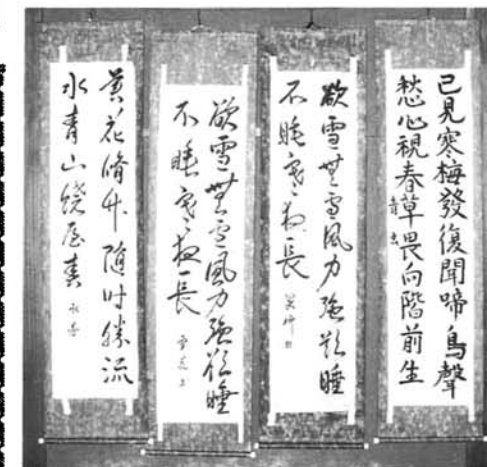 已見寒梅發復聞啼鳥聲
愁心視春草畏向階前生
欲雪無雪風力強欲睡
不睡夜長
欲雪無雪風力強欲睡
不睡夜長
黃花脩竹隨时勝流
水青山繞屋春